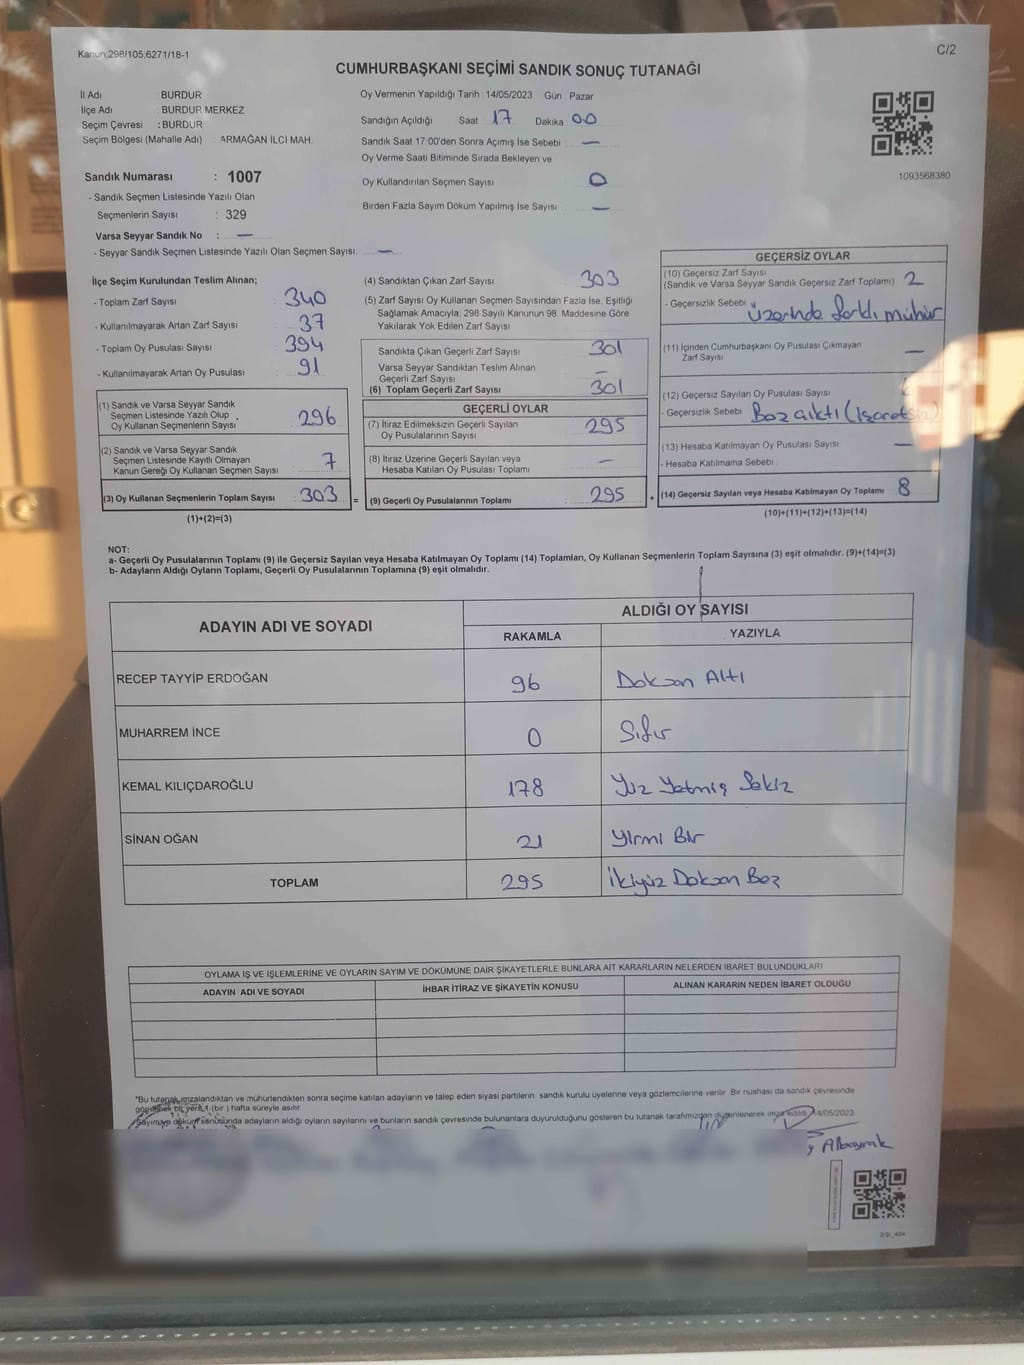 Kanun;298/105;6271/18-1
C/2
CUMHURBAŞKANI SEÇİMİ SANDIK SONUÇ TUTANAĞI
İl Adı BURDUR
İlçe Adı : BURDUR MERKEZ
Seçim Çevresi : BURDUR
Seçim Bölgesi (Mahalle Adı) : ARMAĞAN İLCİ MAH.
Sandık Numarası : 1007
- Sandık Seçmen Listesinde Yazılı Olan
Seçmenlerin Sayısı : 329
Varsa Seyyar Sandık No : —
- Seyyar Sandık Seçmen Listesinde Yazılı Olan Seçmen Sayısı: —
Oy Vermenin Yapıldığı Tarih : 14/05/2023 Gün Pazar
Sandığın Açıldığı Saat 17 Dakika 00
Sandık Saat 17:00'den Sonra Açımış İse Sebebi —
Oy Verme Saati Bitiminde Sırada Bekleyen ve
Oy Kullandırılan Seçmen Sayısı 0
Birden Fazla Sayım Döküm Yapılmış İse Sayısı —
1093568380
İlçe Seçim Kurulundan Teslim Alınan;
- Toplam Zarf Sayısı 340
- Kullanılmayarak Artan Zarf Sayısı 37
- Toplam Oy Pusulası Sayısı 394
- Kullanılmayarak Artan Oy Pusulası 91
(1) Sandık ve Varsa Seyyar Sandık
Seçmen Listesinde Yazılı Olup
Oy Kullanan Seçmenlerin Sayısı 296
(2) Sandık ve Varsa Seyyar Sandık
Seçmen Listesinde Kayıtlı Olmayan
Kanun Gereği Oy Kullanan Seçmen Sayısı 7
(3) Oy Kullanan Seçmenlerin Toplam Sayısı : 303 =
(1)+(2)=(3)
(4) Sandıktan Çıkan Zarf Sayısı 303
(5) Zarf Sayısı Oy Kullanan Seçmen Sayısından Fazla İse, Eşitliği
Sağlamak Amacıyla, 298 Sayılı Kanunun 98. Maddesine Göre
Yakılarak Yok Edilen Zarf Sayısı
Sandıkta Çıkan Geçerli Zarf Sayısı 301
Varsa Seyyar Sandıktan Teslim Alınan
Geçerli Zarf Sayısı —
(6) Toplam Geçerli Zarf Sayısı 301
GEÇERLİ OYLAR
(7) İtiraz Edilmeksizin Geçerli Sayılan
Oy Pusulalarının Sayısı 295
(8) İtiraz Üzerine Geçerli Sayılan veya
Hesaba Katılan Oy Pusulası Toplamı —
(9) Geçerli Oy Pusulalarının Toplamı : 295 +
GEÇERSİZ OYLAR
(10) Geçersiz Zarf Sayısı
(Sandık ve Varsa Seyyar Sandık Geçersiz Zarf Toplamı) 2
- Geçersizlik Sebebi Üzerinde farklı mühür
(11) İçinden Cumhurbaşkanı Oy Pusulası Çıkmayan
Zarf Sayısı —
(12) Geçersiz Sayılan Oy Pusulası Sayısı
- Geçersizlik Sebebi Boz çıktı (İşaretsiz)
(13) Hesaba Katılmayan Oy Pusulası Sayısı —
- Hesaba Katılmama Sebebi
(14) Geçersiz Sayılan veya Hesaba Katılmayan Oy Toplamı 8
(10)+(11)+(12)+(13)=(14)
NOT:
a- Geçerli Oy Pusulalarının Toplamı (9) ile Geçersiz Sayılan veya Hesaba Katılmayan Oy Toplamı (14) Toplamları, Oy Kullanan Seçmenlerin Toplam Sayısına (3) eşit olmalıdır. (9)+(14)=(3)
b- Adayların Aldığı Oyların Toplamı, Geçerli Oy Pusulalarının Toplamına (9) eşit olmalıdır.
ADAYIN ADI VE SOYADI ALDIĞI OY SAYISI
RAKAMLA YAZIYLA
RECEP TAYYİP ERDOĞAN 96 Doksan Altı
MUHARREM İNCE 0 Sıfır
KEMAL KILIÇDAROĞLU 178 Yüz Yetmiş Sekiz
SİNAN OĞAN 21 Yirmi Bir
TOPLAM 295 İkiyüz Doksan Beş
OYLAMA İŞ VE İŞLEMLERİNE VE OYLARIN SAYIM VE DÖKÜMÜNE DAİR ŞİKAYETLERLE BUNLARA AİT KARARLARIN NELERDEN İBARET BULUNDUKLARI
ADAYIN ADI VE SOYADI İHBAR İTİRAZ VE ŞİKAYETİN KONUSU ALINAN KARARIN NEDEN İBARET OLDUĞU
*Bu tutanak imzalandıktan ve mühürlendikten sonra seçime katılan adayların ve talep eden siyasi partilerin sandık kurulu üyelerine veya gözlemcilerine verilir. Bir nüshası da sandık çevresinde
bir yere 1 (bir) hafta süreyle asılır.
Sayım ve döküm sonusunda adayların aldığı oyların sayılarını ve bunların sandık çevresinde bulunanlara duyurulduğunu gösteren bu tutanak tarafımızdan düzenlenerek imza edildi. 14/05/2023
Albayrak